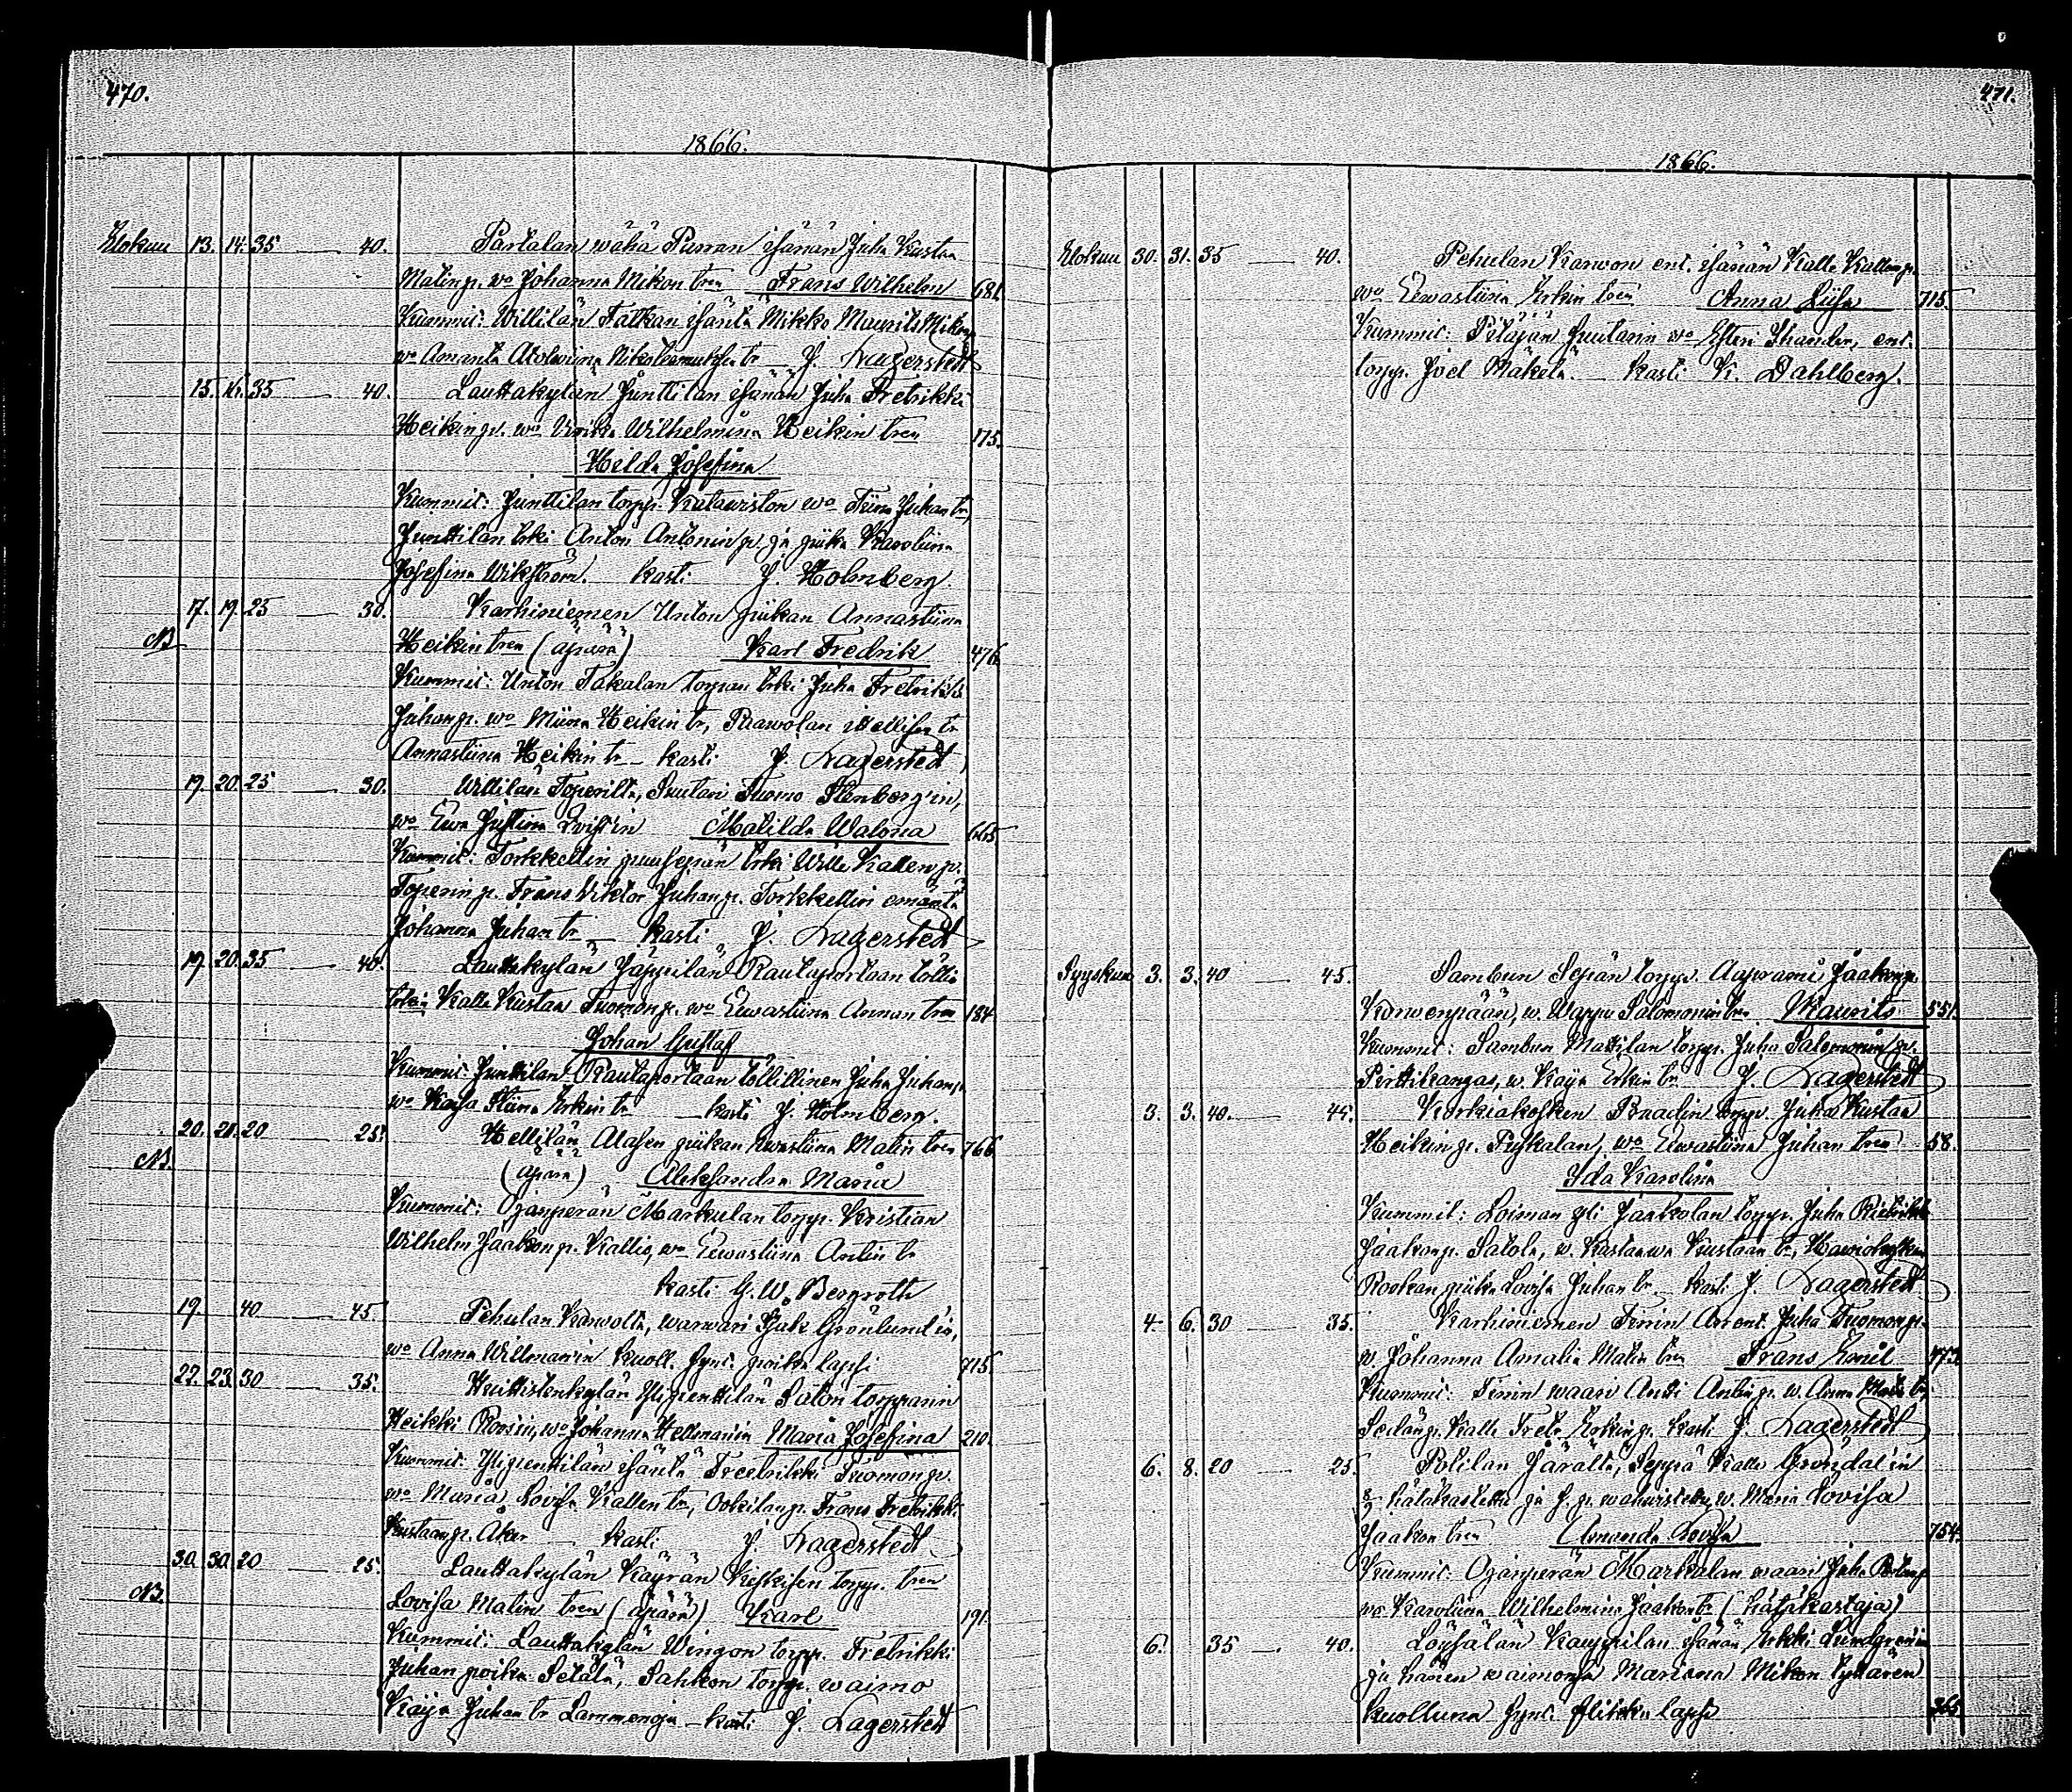 470.
1866.
Elokuu 13. 14. 35 — 40. Partalan wähä Parran isänän Juha Kustaa
Matinp. wo Johanna Mikon tren Frans Wilhelm 681.
Kummit: Willilän Talkan isäntä Mikko Maurits Mikonp.
wo Amanta J. Lagerstedt
15. 16. 35 — 40. Lauttakylän Junttilan isänän Juha Fretrikki
Heikinp. wo Ulriika Wilhelmina Heikin tren 175.
Helda Josefina
Kummit: Junttilan torpp. Katawiston wo Tiina Juhan tr,
Junttilan trki Anton Antoninp. ja piika Karoliina
Josefina Wikström. kasti J. Holmberg.
17. 19. 25 — 30. Karhiniemen Unton piikan Annastiina
NB. Heikin tren (äpärä) Karl Fredrik 476.
Kummit: Unton Takalan torpan trki Juha Fretrikki
Juhanp. wo Miina Heikin tr, Paawolan itellisen tr
Annastiina Heikin tr — kasti J. Lagerstedt
19. 20. 25 — 30. Willilän Toperilta, Suutari Tuomo Stenberg'in,
wo Ewa Justina Qvist'in Matilda Walona 665
Kummit: Torkkellin puusepän trki Wille Kallenp.
Toperinp. Frans Viktor Juhanp. Torkkellin emäntä
Johanna Juhan tr — kasti J. Lagerstedt
19. 20. 35 — 40. Lauttakylän Jäppilän Rautaportaan töllin
trkin Kalle Kustaa Tuomonp. wo Eewastiina Annan tren 184.
Johan Gustaf
Kummit: Junttilan Rautaportaan töllillinen Juha Juhanp.
wo Kaisa Stiina Erkin tr — kasti J. Holmberg.
20. 21. 20 — 25. Hellilän Alasen piikan Ewastiina Matin tren 766
NB. (äpärä) Aleksandra Maria
Kummit: Ojanperän Markulan torpp. Kristian
Wilhelm Jaakonp. Kallio, wo Eewastiina Antin tr
kasti G. W. Bergroth
19. 40 — 45. Pehulan Karwolta, warwari Isak Grönlund'in,
wo Anna Willman'in kuoll. synt. poika lapsi 715
22. 23. 30 — 35. Huittistenkylän Ylipienttilän Salon torpparin
Heikki Roosin, wo Johanna Hellman'in Maria Josefina 210
Kummit: Ylipienttilän isäntä Freetrikki Tuomonp.
wo Maria Lovisa Kallen tr, Frans Fretrikki
Kustaanp. kasti J. Lagerstedt
30. 30. 20 — 25. Lauttakylän Käyrän Kiskisen torpp. tren
NB. Lovisa Matin tren (äpärä) Karl 191
Kummit: Lauttakylän Wingon torpp. Fretrikki
Juhan poika Setälä, Sahkon torpp. waimo
Kaija Juhan tr Lammenoja — kasti J. Lagerstedt
471.
1866.
Elokuu 30. 31. 35 — 40. Pehulan Karwon ent. isänän Kalle Kallenp.
wo Eewastiina Erkin tren Anna Liisa 715.
Kummit: Pitäjän Suutarin wo Esteri Thander, ent.
torpp. Joel Mäkelä. kasti K. Dahlberg.
Syyskuu 3. 3. 40 — 45. Sambun Sepän torpp. Aaprami Jaakonp.
Korwenpään, w. Wappu Salomonin tren Maurits 551.
Kummit: Sambun Mattilan torpp. Juha Salomoninp.
Pirttikangas, w. Kaija Erkin tr J. Lagerstedt
3. 3. 40. — 45. Korkiakosken Raadin torpp. Juha Kustaa
Heikinp. Pyskalan, wo Eewastiina Juhan tren 58.
Ida Karolina
Kummit: Loiman yli Jaakolan torpp. Juha
Jaakonp. Satola, w. Kustaawa Kustaan tr,
Rookan piika Lovisa Juhan tr kasti J. Lagerstedt
4. 6. 30 — 35. Karhiniemen Finin Arent. Juha Tuomonp.
w. Johanna Amalia Matin tren Frans Emil 473
Kummit: Finin waari Antti Antinp. w. Anna Matin tr,
Kalle Fretr. Erkinp. kasti J. Lagerstedt
6. 8. 20 — 25. Polilan Järältä, Seppä Kalle Gröndal'in
hätäkastettu ja s. p. wahwistettu w. Maria Lovisa
Jaakon tren Amanda Lovisa 754.
Kummit: Ojanperän Markulan waari Juha
wo Karoliina Wilhelmina Jaakon tr (hätäkastaja)
6. 35 — 40. Löysälän Kauppilan isänän Erkki Lundgren'in
ja hänen waimonsa Mariana Mikon tyttären
kuolluna synt. flikka lapsi 365